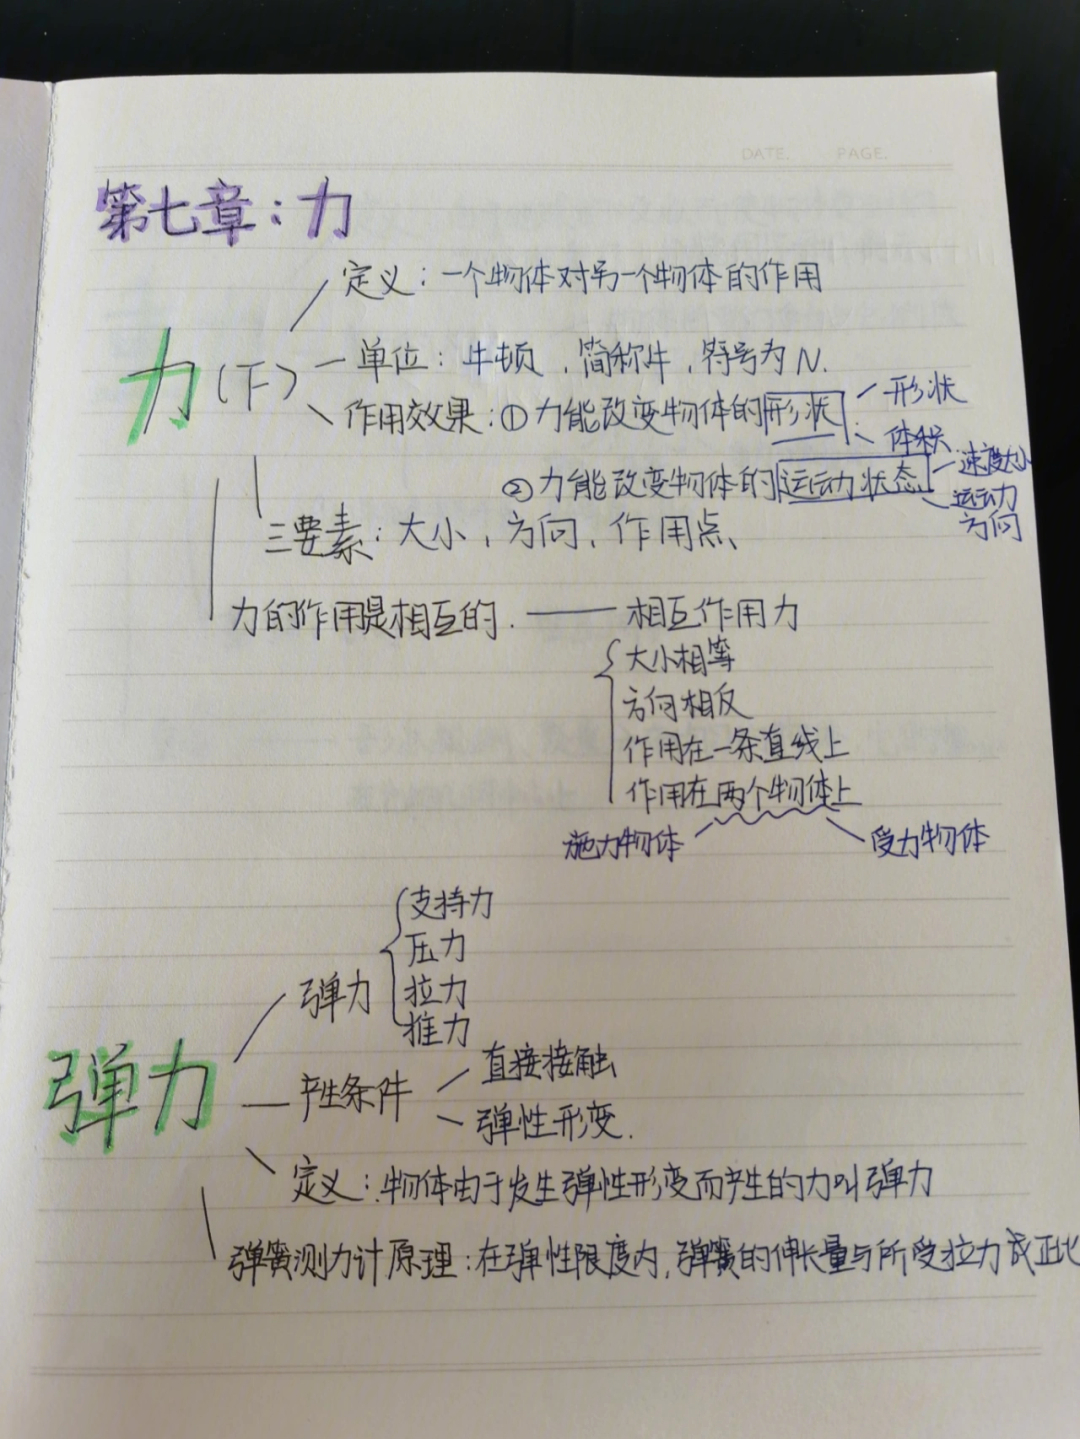 DATE. PAGE.
第七章：力
定义：一个物体对另一个物体的作用
力(F)
单位：牛顿，简称牛，符号为N.
作用效果：①力能改变物体的形状
形状
体积
②力能改变物体的运动状态
速度大小
运动
方向
三要素：大小，方向，作用点、
力的作用是相互的. —— 相互作用力
大小相等
方向相反
作用在一条直线上
作用在两个物体上
施力物体 受力物体
支持力
压力
弹力
拉力
推力
弹力
产生条件
直接接触
弹性形变.
定义：物体由于发生弹性形变而产生的力叫弹力
弹簧测力计原理：在弹性限度内，弹簧的伸长量与所受拉力成正比